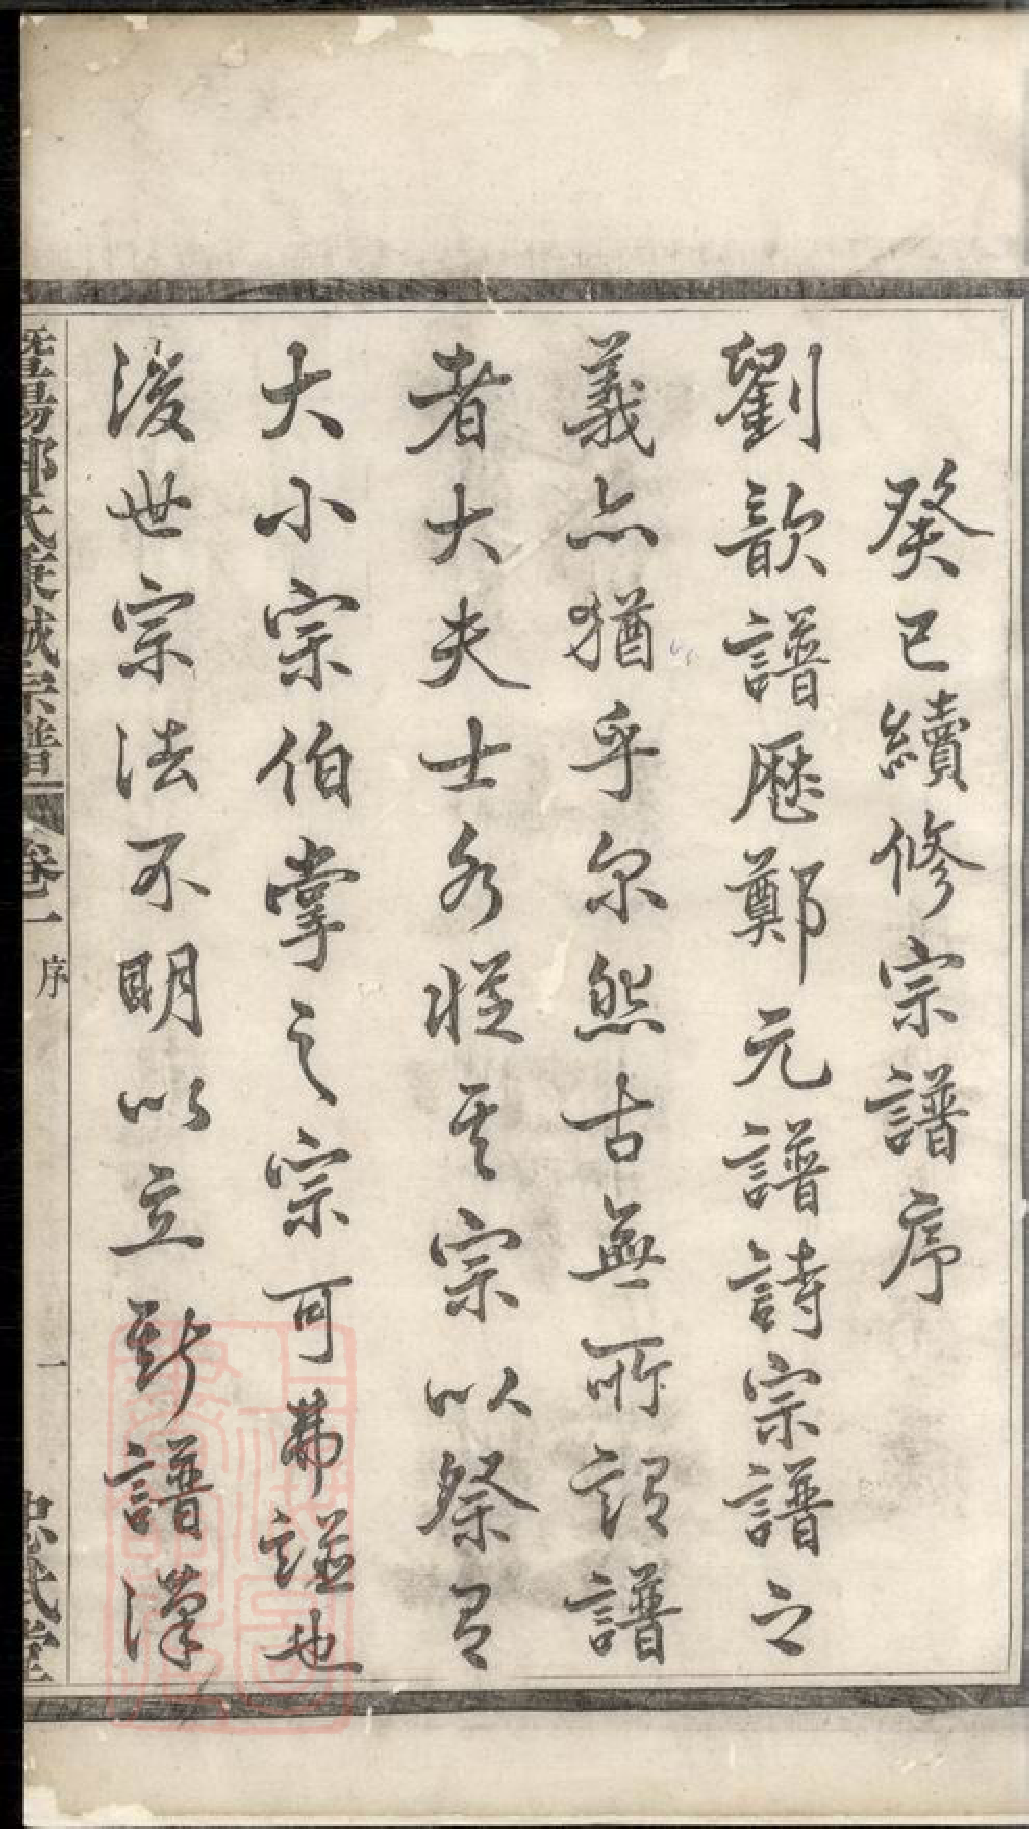 癸巳續修宗譜序
劉歆譜歷鄭元譜詩宗譜之
義亦猶乎尔然古無所謂譜
者大夫士各從其宗以祭有
大小宗伯掌之宗可弗謚也
後世宗法不明以立斯譜漢
暨陽氏宗譜 卷一 序 一 堂